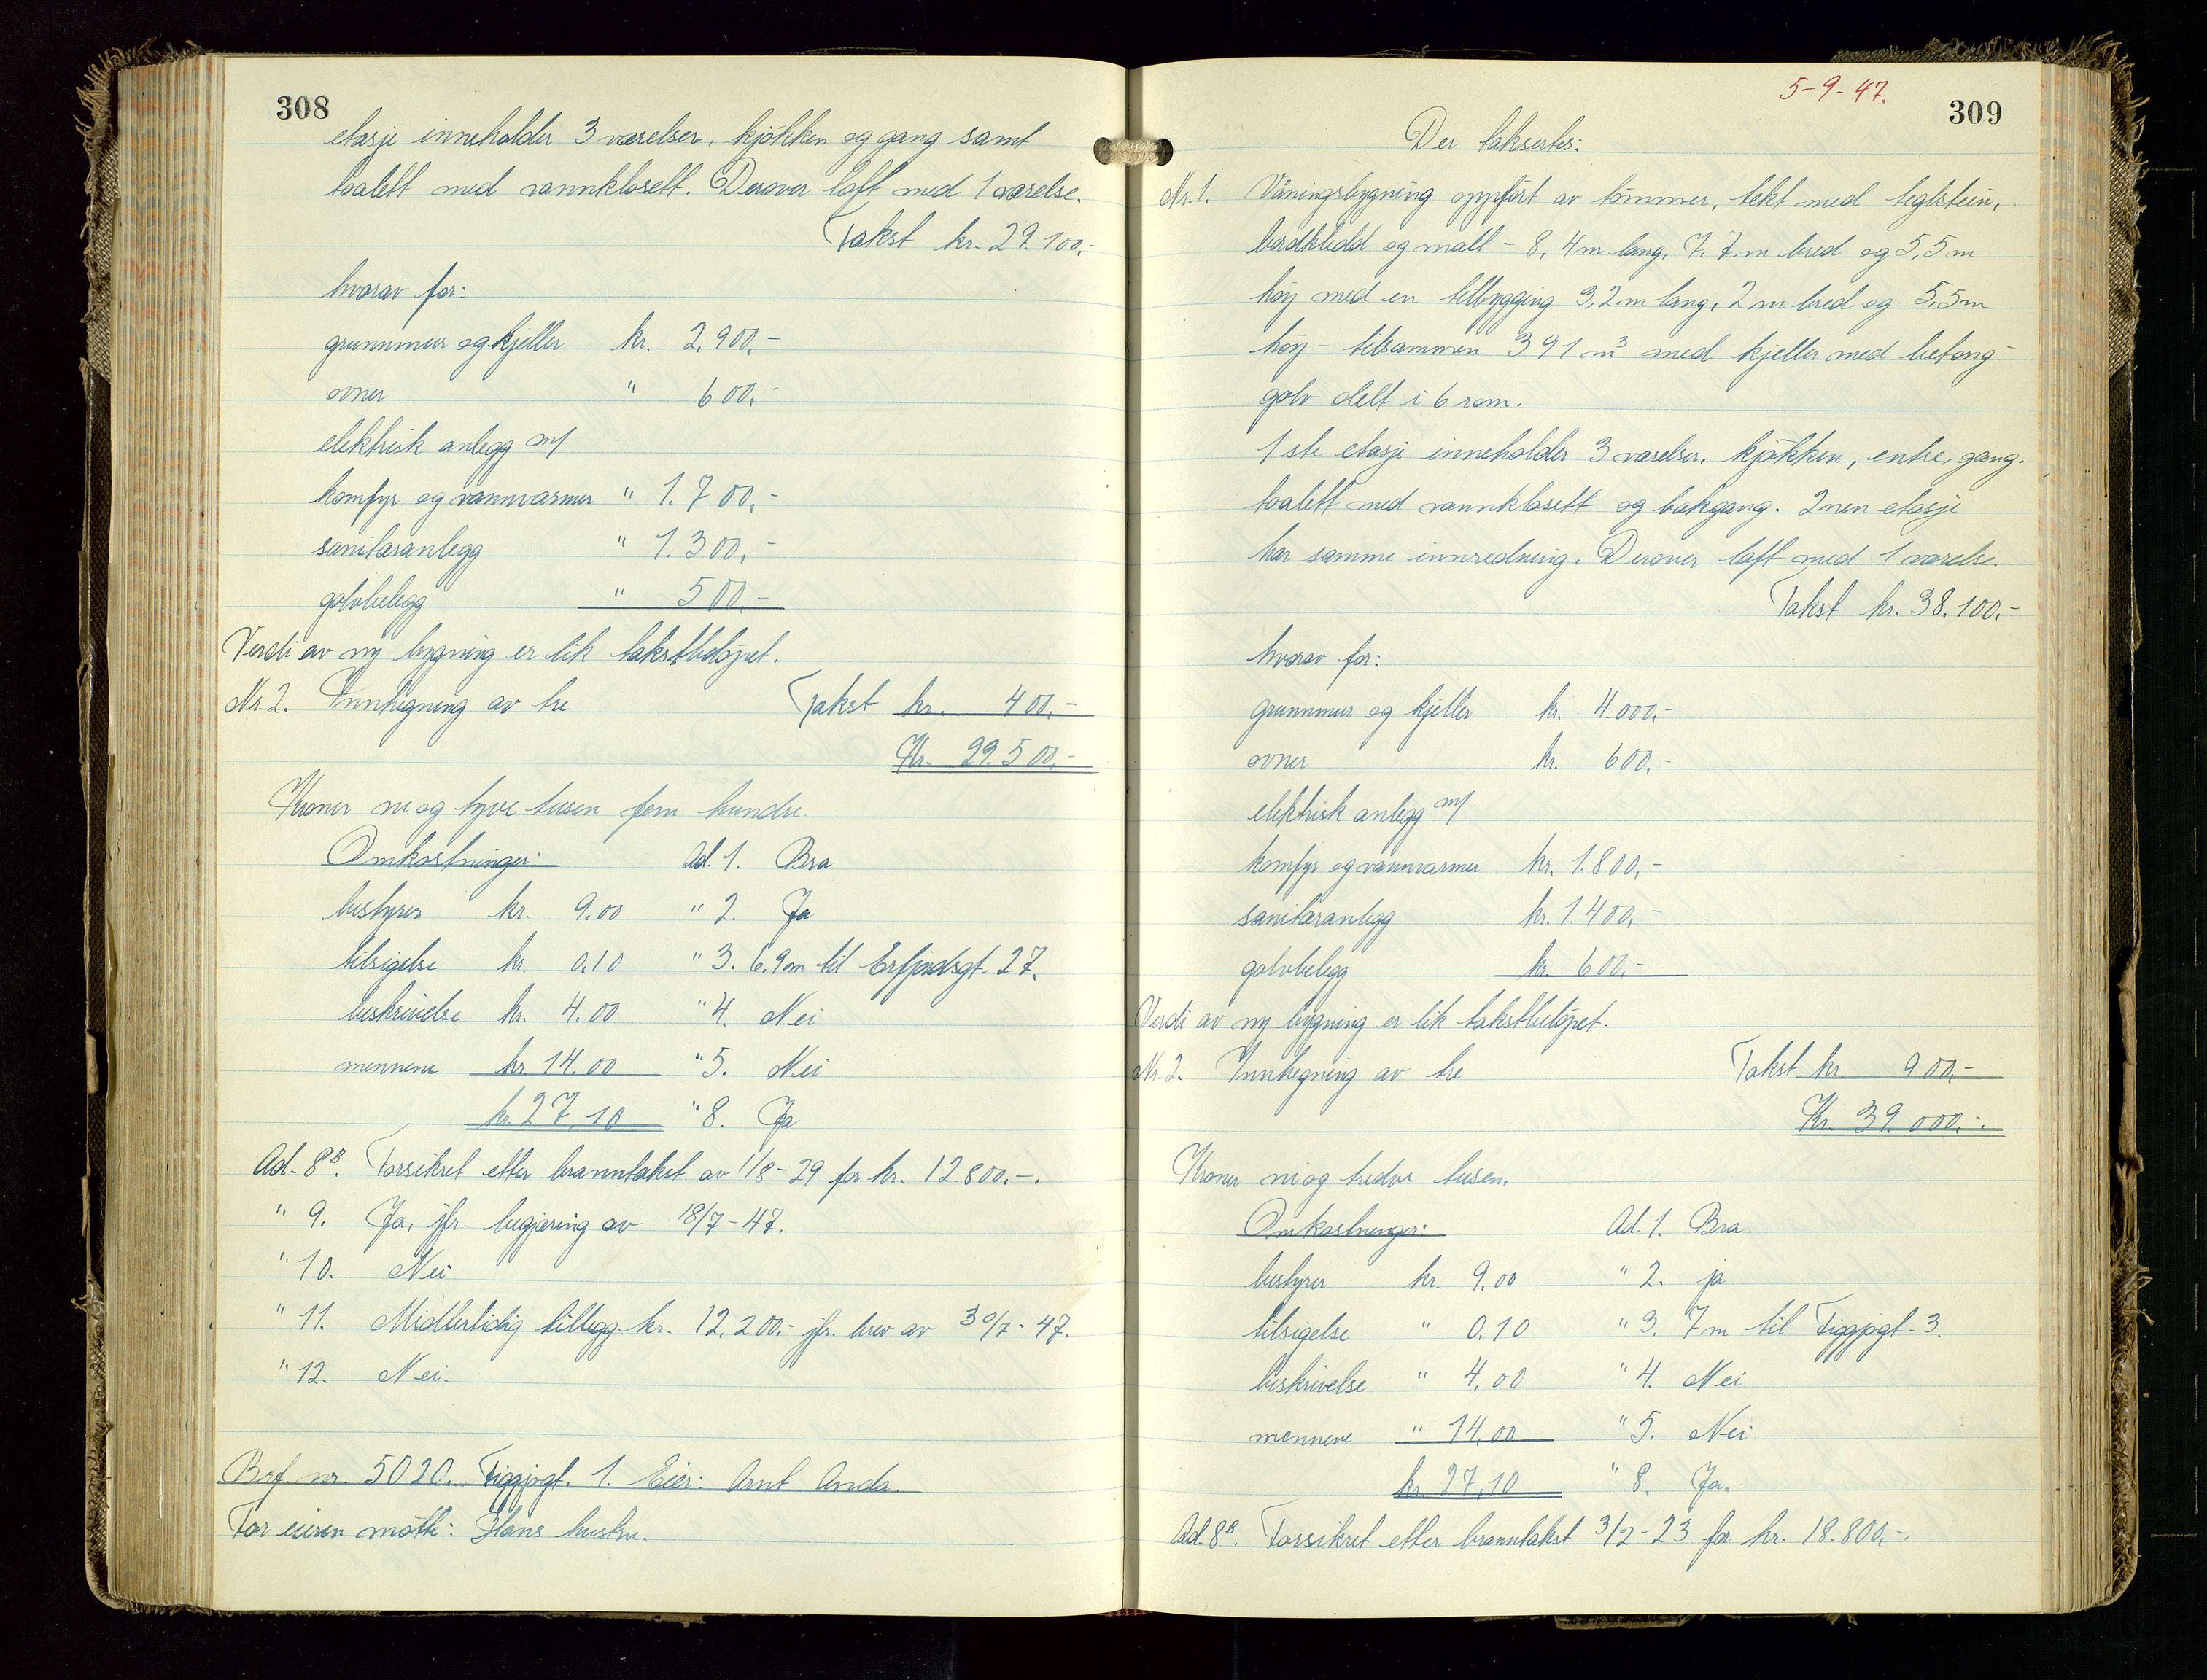 308
etasje inneholder 3 værelser, kjøkken og gang samt
toalett med vannklosett. Derover loft med 1 værelse.
Takst kr. 29.100,-
hvorav for:
grunnmur og kjeller kr. 2.900,-
ovner " 600,-
elektrisk anlegg m/
komfyr og vannvarmer " 1.700,-
sanitæranlegg " 1.300,-
golvbelegg " 500,-
Verdi av ny bygning er lik takstbeløpet.
Nr. 2. Innhegning av tre Takst kr. 400,-
Kr. 29.500,-
Kroner ni og tyve tusen fem hundre.
Omkostninger: Ad. 1. Bra
bestyrer kr. 9.00 " 2. Ja
tilsigelse kr. 0.10 " 3. 6.9m til Erfjordsgt. 27.
beskrivelse kr. 4.00 " 4. Nei
mennene kr. 14.00 " 5. Nei
kr. 27,10 " 8. Ja
Ad. 8B. Forsikret etter branntakst av 1/8-29 for kr. 12.800.-.
" 9. Ja, jfr. begjæring av 18/7-47.
" 10. Nei
" 11. Midlertidig tillegg kr. 12.200,- jfr. brev av 30/7-47.
" 12. Nei.
Brf. nr. 5020. Figgjogt. 1. Eier: Arnt Anda.
For eieren møtte: Hans hustru.
5-9-47.
309
Der taksertes:
Nr. 1. Våningsbygning oppført av tømmer, tekt med teglstein,
bordkledd og malt - 8,4m lang, 7,7m bred og 5,5m
høy med en tilbygging 3,2m lang, 2m bred og 5,5m
høy - tilsammen 391 m³ med kjeller med betong-
golv delt i 6 rom.
1ste etasje inneholder 3 værelser, kjøkken, entre, gang.
toalett med vannklosett og bakgang. 2nen etasje
har samme innredning. Derover loft med 1 værelse.
Takst kr. 38.100,-
hvorav for:
grunnmur og kjeller kr. 4.000,-
ovner kr. 600,-
elektrisk anlegg m/
komfyr og vannvarmer kr. 1.800,-
sanitæranlegg kr. 1.400,-
golvbelegg kr. 600,-
Verdi av ny bygning er lik takstbeløpet.
Nr. 2. Innhegning av tre Takst kr 900,-
Kr. 39.000,-.
Kroner ni og tredve tusen.
Omkostninger: Ad. 1. Bra
bestyrer kr. 9,00 " 2. ja
tilsigelse " 0,10 " 3. 7m til Figgjogt. 3.
beskrivelse " 4,00 " 4. Nei
mennene " 14,00 " 5. Nei
kr. 27,10 " 8. Ja.
Ad. 8B. Forsikret etter branntakst 3/2-23 for kr. 18.800,-.